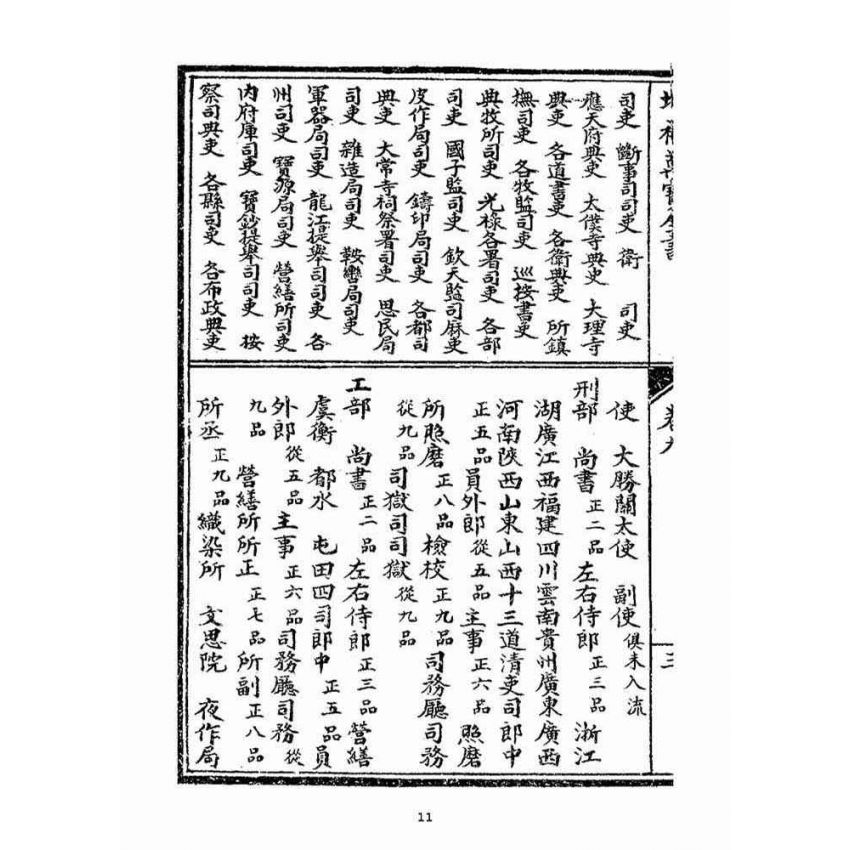 司吏　斷事司司吏　衛　司吏
應天府典吏　太僕寺典吏　大理寺
典吏　各道書吏　各衛典吏　所鎮
撫司吏　各牧監司吏　巡按書吏
典牧所司吏　光祿各署司吏　各部
司吏　國子監司吏　欽天監司厤吏
皮作局司吏　鑄印局司吏　各都司
典吏　大常寺祠祭署司吏　思民局
司吏　雜造局司吏　鞍轡局司吏
軍器局司吏　龍江提舉司司吏　各
州司吏　寶源局司吏　營繕所司吏
內府庫司吏　寶鈔提舉司司吏　按
察司典吏　各縣司吏　各布政典吏
使　大勝關太使　副使俱未入流
刑部　尚書正二品　左右侍郎正三品　浙江
湖廣江西福建四川雲南貴州廣東廣西
河南陝西山東山西十三道清吏司郎中
正五品　員外郎從五品　主事正六品　照磨
所照磨正八品　檢校正九品　司務廳司務
從九品　司獄司司獄從九品
工部　尚書正二品　左右侍郎正三品　營繕
虞衡　都水　屯田四司郎中正五品　員
外郎從五品　主事正六品　司務廳司務從
九品　營繕所所正正七品　所副正八品
所丞正九品　織染所　文思院　夜作局
卷九
三
11